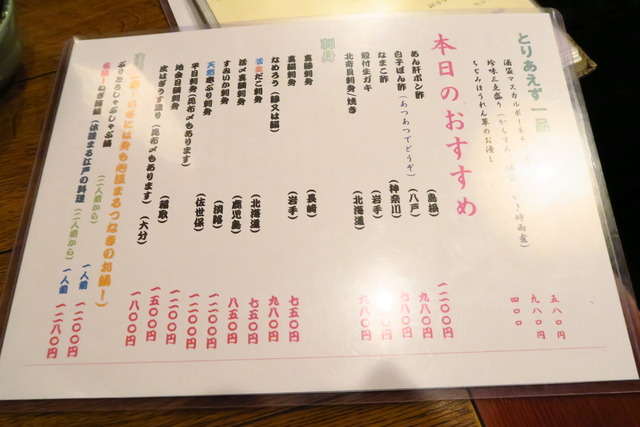 とりあえず一品
酒盗マスカルポーネチーズ 五八〇円
珍味三点盛り 九八〇円
ちぢみほうれん草のお浸し 四〇〇
本日のおすすめ
あん肝ポン酢 (島根) 一二〇〇円
白子ぽん酢(あつあつでどうぞ) (八戸) 九八〇円
なまこ酢 (神奈川) 七八〇円
殻付生ガキ (岩手)
北寄貝刺身/焼き (北海道) 九八〇円
刺身
真鯵刺身 (長崎) 七五〇円
真鯛刺身 (岩手)
なめろう(鯵又は鰯) 九八〇円
活生だこ刺身 (北海道) 七五〇円
活〆真鯛刺身 (鹿児島) 八五〇円
すみいか刺身 (淡路) 一二〇〇円
天然ぶり刺身 (佐世保) 一二〇〇円
平目刺身(昆布〆もあります) 一二〇〇円
地金目鯛刺身 (稲取) 一五〇〇円
皮はぎうす造り(昆布〆もあります) (大分) 一八〇〇円
身も心も温まるつなぎのお鍋!)
ぶりとろしゃぶしゃぶ鍋 (二人前から) 一人前 一二〇〇円
ねぎ鮪鍋(体温まる江戸の料理) (二人前から) 一人前 一二八〇円